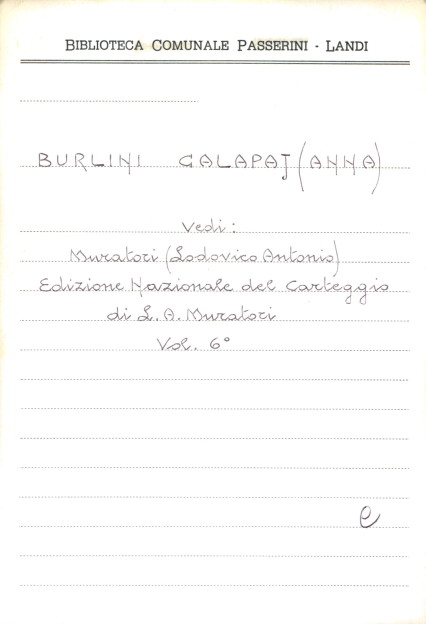 BIBLIOTECA COMUNALE PASSERINI - LANDI
BURLINI GALAPAJ (ANNA)
Vedi:
Muratori (Lodovico Antonio)
Edizione Nazionale del Carteggio
di L. A. Muratori
Vol. 6°
e